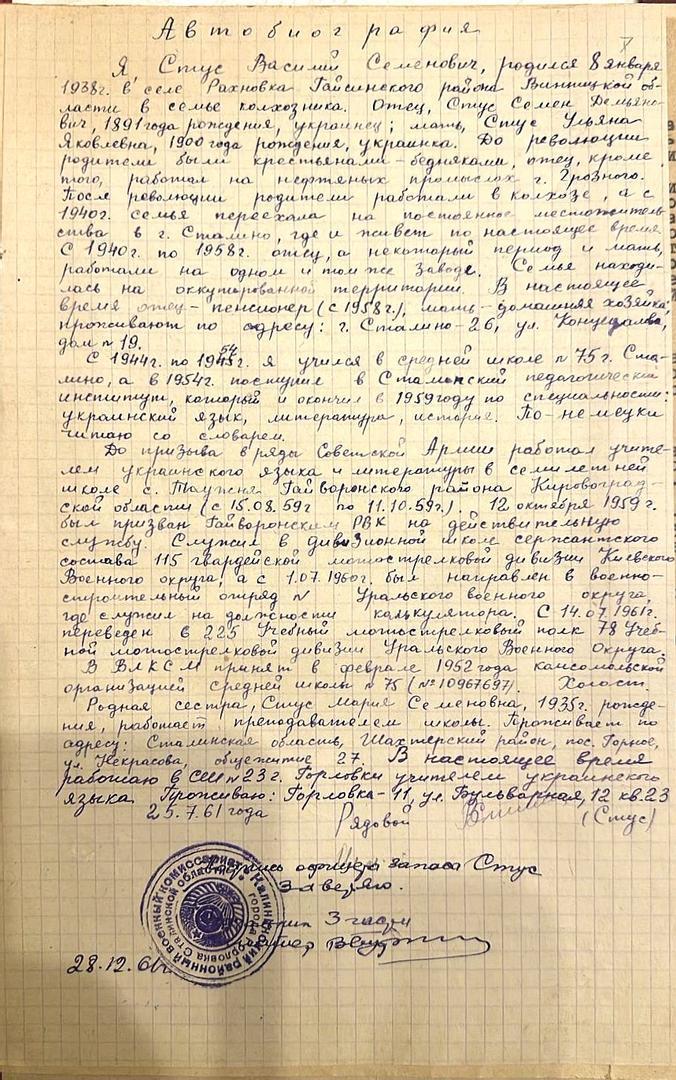 Автобиография
Я, Стус Василий Семенович, родился 8 января
1938г. в селе Рахновка Гайсинского района Винницкой об-
ласти в семье колхозника. Отец, Стус Семен Демьяно-
вич, 1891 года рождения, украинец; мать, Стус Ульяна
Яковлевна, 1900 года рождения, украинка. До революции
родители были крестьянами-бедняками, отец, кроме
того, работал на нефтяных промыслах г. Грозного.
После революции родители работали в колхозе, а с
1940г. семья переехала на постоянное местожитель
ства в г. Сталино, где и живет по настоящее время
С 1940г. по 1958г. отец, а некоторый период и мать,
работали на одном и том же заводе. Семья находи-
лась на оккупированной территории. В настоящее
время отец - пенсионер (с 1958г.), мать - домашняя хозяйка,
проживают по адресу: г. Сталино-26, ул.
дом № 19.
С 1944г. по 1954г. я учился в средней школе № 75 г. Ста-
лино, а в 1954г. поступил в Сталинский педагогический
институт, который и окончил в 1959 году по специальности:
украинский язык, литература, история. По-немецки
читаю со словарем.
До призыва в ряды Советской Армии работал учите-
лем украинского языка и литературы в семилетней
школе с. Таужня Гайворонского района Кировоград-
ской области (с 15.08.59г по 11.10.59г.). 12 октября 1959г.
был призван Гайворонским РВК на действительную
службу. Служил в дивизионной школе сержантского
состава 115 гвардейской мотострелковой дивизии Киевского
Военного округа, а с 1.07.1960г. был направлен в военно-
строительный отряд № Уральского военного округа,
где служил на должности калькулятора. С 14.07.1961г.
переведен в 225 Учебный мотострелковый полк 78 Учеб-
ной мотострелковой дивизии Уральского Военного Округа.
В ВЛКСМ принят в феврале 1952 года комсомольской
организацией средней школы № 75 (№ 10967697). Холост.
Родная сестра, Стус Мария Семеновна, 1935г. рожде-
ния, работает преподавателем школы. Проживает по
адресу: Сталинская область, Шахтерский район, пос. Горное,
ул. Некрасова, общежитие 27. В настоящее время
работаю в СШ № 23 г. Горловки учителем украинского
языка. Проживаю: Горловка-11, ул. Бульварная, 12 кв. 23
25.7.61 года Рядовой (Стус)
Подпись офицера запаса Стус
Заверяю.
3 части
районный военный комиссариат
Калининский
города Горловка Сталинской области
28.12.61г.